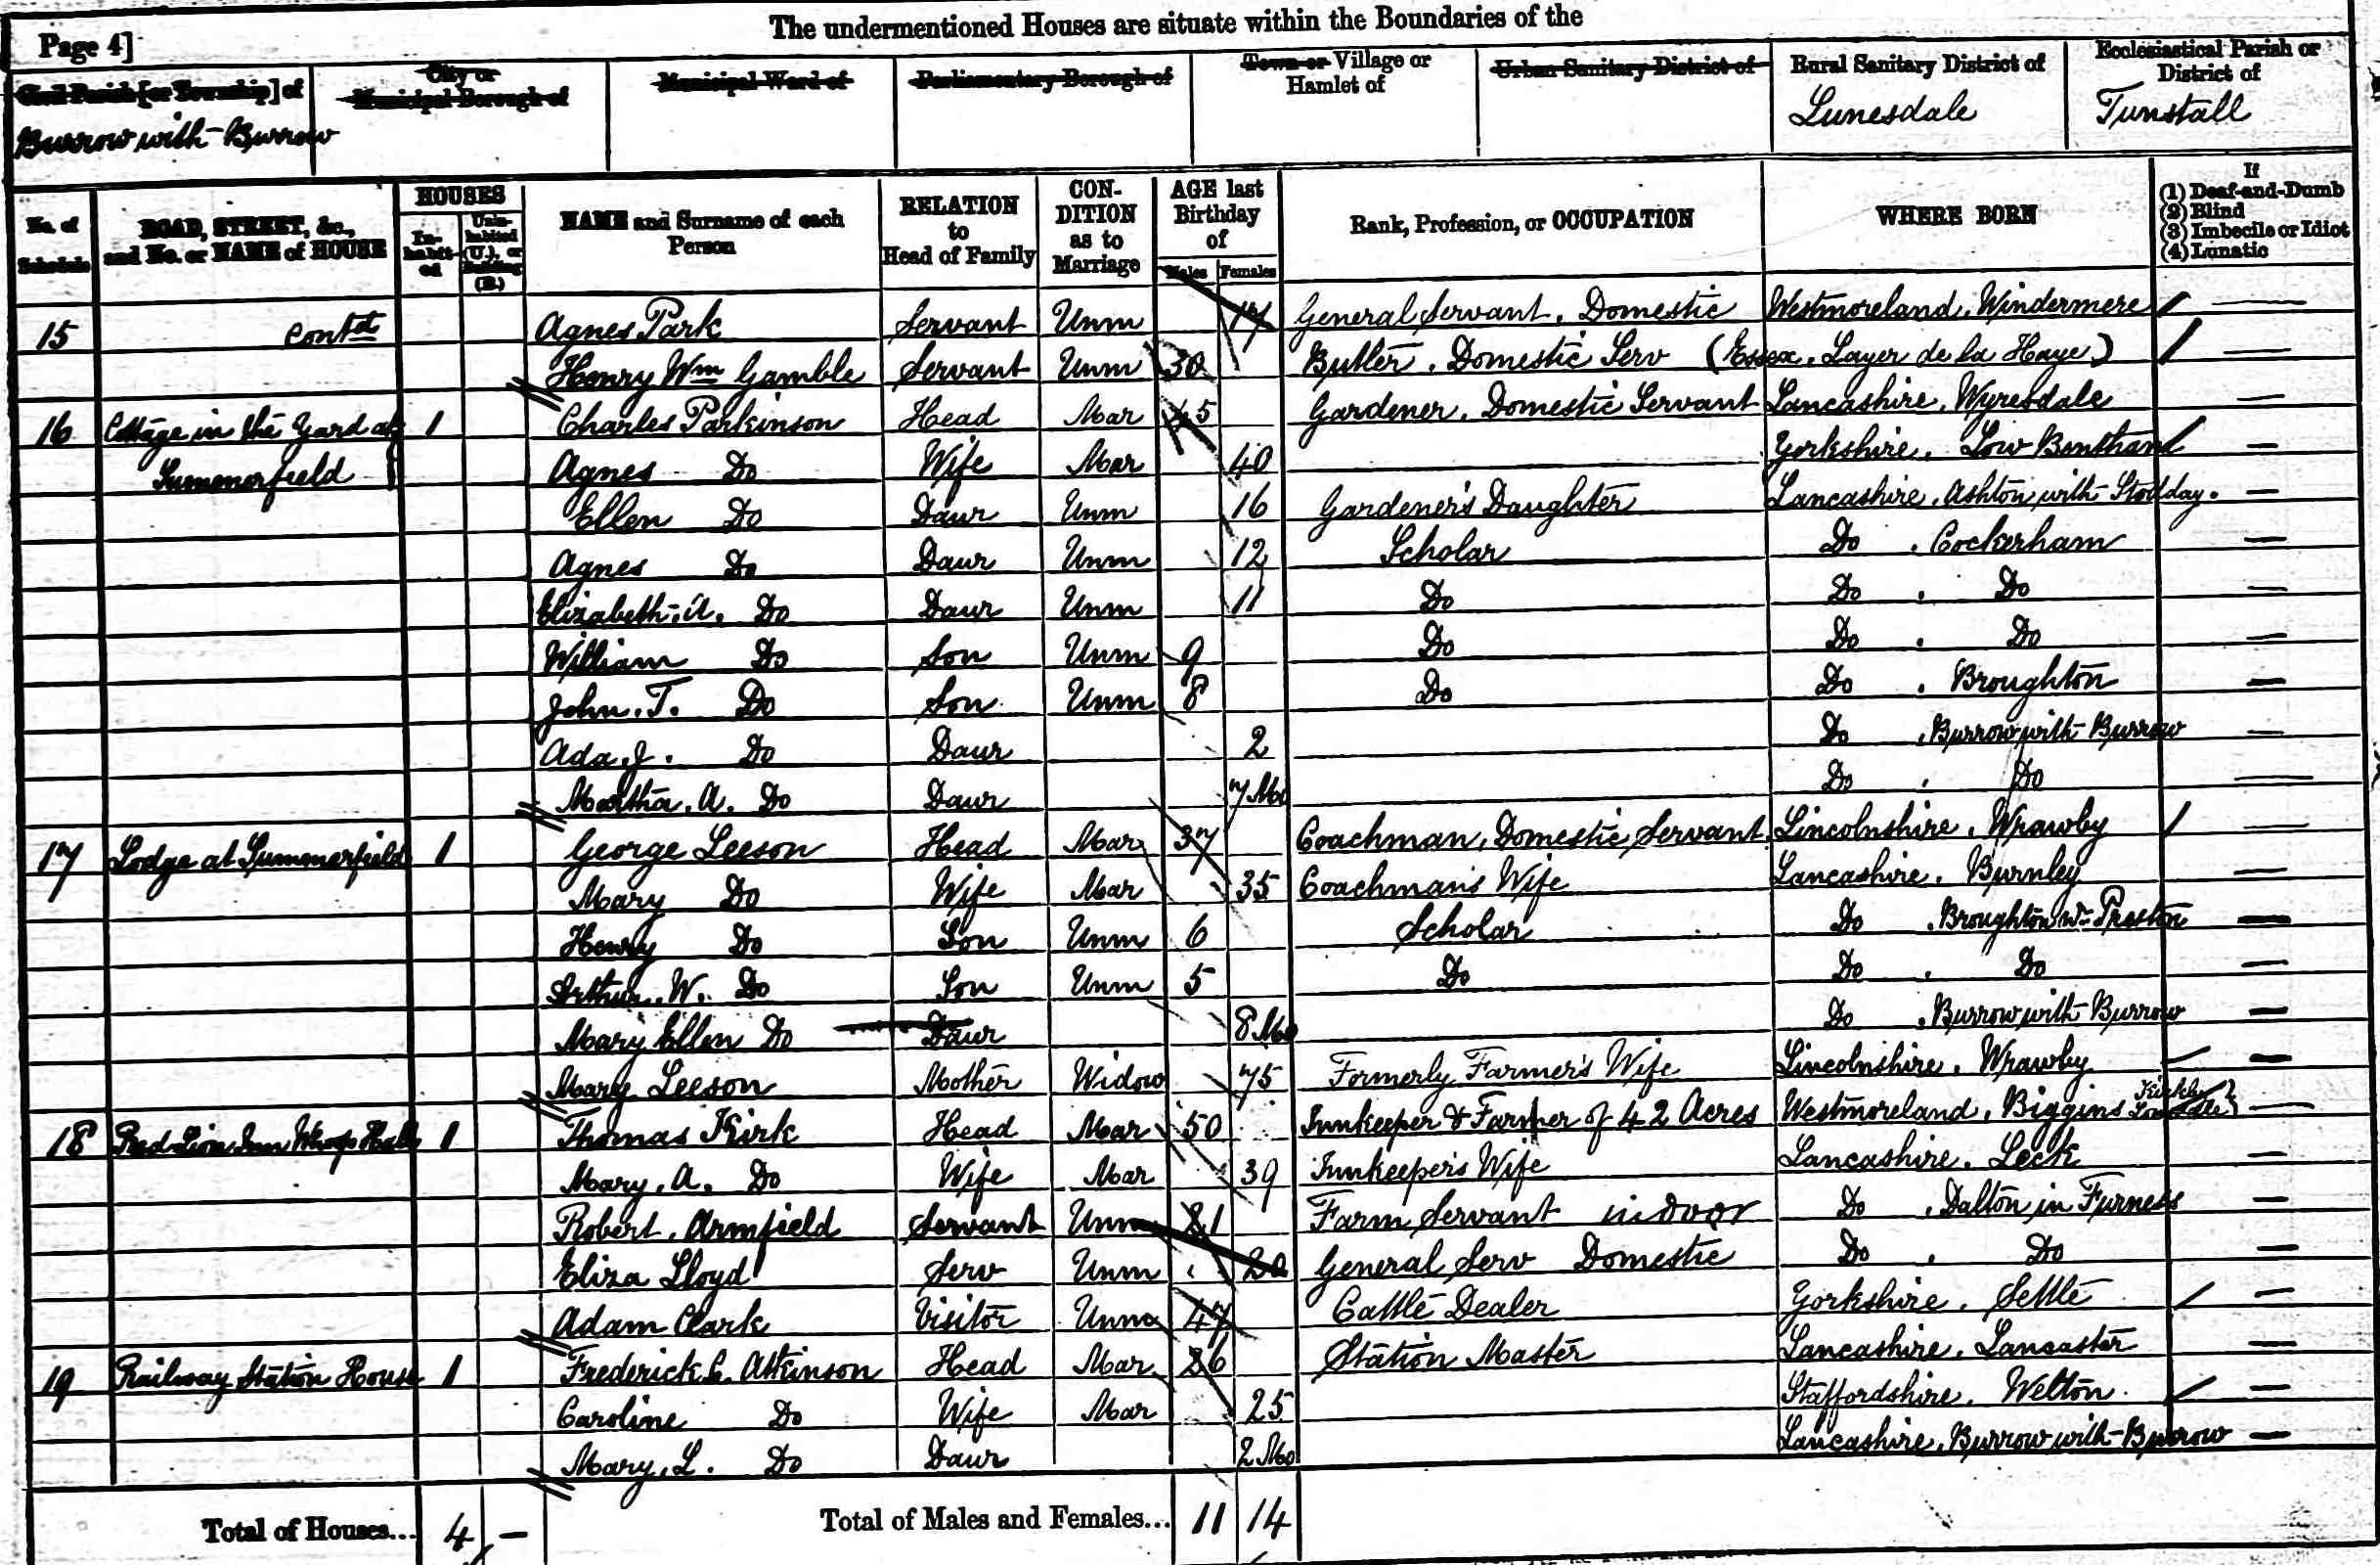 The undermentioned Houses are situate within the Boundaries of the
Page 4]
Civil Parish [or Township] of
Burrow with Burrow
City or Municipal Borough of
Municipal Ward of
Parliamentary Borough of
Town or Village or Hamlet of
Urban Sanitary District of
Rural Sanitary District of
Lunesdale
Ecclesiastical Parish or District of
Tunstall
No. of Schedule
ROAD, STREET, &c., and No. or NAME of HOUSE
HOUSES
In-habit-ed
Unin-habited (U.), or Building (B.)
NAME and Surname of each Person
RELATION to Head of Family
CON-DITION as to Marriage
AGE last Birthday of
Males Females
Rank, Profession, or OCCUPATION
WHERE BORN
If
(1) Deaf-and-Dumb
(2) Blind
(3) Imbecile or Idiot
(4) Lunatic
15 contd Agnes Park Servant Unm 17 General Servant, Domestic Westmoreland, Windermere —
Henry Wm Gamble Servant Unm 30 Butler, Domestic Serv (Essex, Layer de la Haye) —
16 Cottage in the Yard at 1 Charles Parkinson Head Mar 45 Gardener, Domestic Servant Lancashire, Wyresdale —
Summerfield Agnes Do Wife Mar 40 Yorkshire, Low Bentham —
Ellen Do Daur Unm 16 Gardener's Daughter Lancashire, Ashton with Stodday. —
Agnes Do Daur Unm 12 Scholar Do . Cockerham —
Elizabeth. A. Do Daur Unm 11 Do Do . Do —
William Do Son Unm 9 Do Do . Do —
John. T. Do Son Unm 8 Do Do . Broughton —
Ada. J. Do Daur 2 Do . Burrow with Burrow —
Martha. A. Do Daur 7 Mo Do . Do —
17 Lodge at Summerfield 1 George Leeson Head Mar 37 Coachman, Domestic Servant Lincolnshire, Wrawby —
Mary Do Wife Mar 35 Coachman's Wife Lancashire, Burnley —
Henry Do Son Unm 6 Scholar Do . Broughton nr Preston —
Arthur. W. Do Son Unm 5 Do Do . Do —
Mary Ellen Do Daur 8 Mo Do . Burrow with Burrow —
Mary Leeson Mother Widow 75 Formerly Farmer's Wife Lincolnshire, Wrawby —
18 Red Lion Inn Whoop Hall 1 Thomas Kirk Head Mar 50 Innkeeper & Farmer of 42 Acres Westmoreland, Biggins Kirkby Lonsdale —
Mary. A. Do Wife Mar 39 Innkeeper's Wife Lancashire, Leck —
Robert. Armfield Servant Unm 21 Farm Servant indoor Do . Dalton in Furness —
Eliza Lloyd Serv Unm 20 General Serv Domestic Do . Do —
Adam Clark Visitor Unm 47 Cattle Dealer Yorkshire, Settle —
19 Railway Station House 1 Frederick C. Atkinson Head Mar 26 Station Master Lancashire, Lancaster —
Caroline Do Wife Mar 25 Staffordshire, Welton —
Mary. L. Do Daur 2 Mo Lancashire, Burrow with Burrow —
Total of Houses... 4 — Total of Males and Females... 11 14